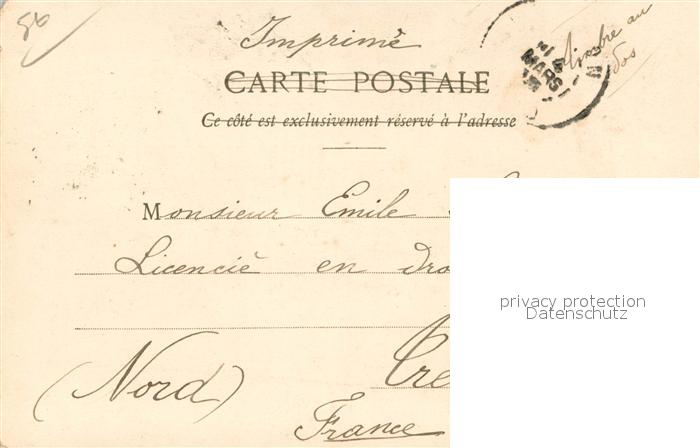 56
Imprimé
Timbre au
dos
CARTE POSTALE
MARS
N
Ce côté est exclusivement réservé à l'adresse
Monsieur Emile
Licencié en Dro
privacy protection
Datenschutz
(Nord) Cre
France